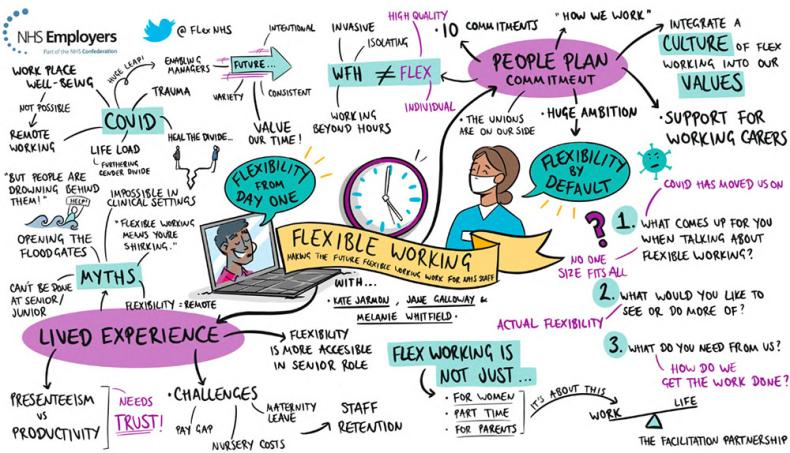 NHS Employers
Part of the NHS Confederation
@ FLEX NHS
WORK PLACE
WELL-BEING
NOT POSSIBLE
REMOTE
WORKING
HUGE LEAP!
ENABLING
MANAGERS
COVID
TRAUMA
LIFE LOAD
FURTHERING
GENDER DIVIDE
HEAL THE DIVIDE...
INTENTIONAL
FUTURE...
VARIETY
CONSISTENT
VALUE
OUR TIME!
INVASIVE
ISOLATING
HIGH QUALITY
WFH ≠ FLEX
INDIVIDUAL
WORKING
BEYOND HOURS
• 10 COMMITMENTS
"HOW WE WORK"
PEOPLE PLAN
COMMITMENT
INTEGRATE A
CULTURE OF FLEX
WORKING INTO OUR
VALUES
• THE UNIONS
ARE ON OUR SIDE
• HUGE AMBITION
• SUPPORT FOR
WORKING CARERS
"BUT PEOPLE ARE
DROWNING BEHIND
THEM!"
HELP!
OPENING THE
FLOODGATES
IMPOSSIBLE IN
CLINICAL SETTINGS
"FLEXIBLE WORKING
MENS YOU'RE
SHIRKING."
MYTHS
CAN'T BE DONE
AT SENIOR/
JUNIOR
FLEXIBILITY = REMOTE
FLEXIBILITY
FROM
DAY ONE
FLEXIBILITY
BY
DEFAULT
FLEXIBLE WORKING
MAKING THE FUTURE FLEXIBLE WORKING WORK FOR NHS STAFF
WITH...
• KATE JARMON, JANE GALLOWAY &
MELANIE WHITFIELD •
COVID HAS MOVED US ON
?
1. WHAT COMES UP FOR YOU
WHEN TALKING ABOUT
FLEXIBLE WORKING?
NO ONE
SIZE FITS ALL
2. WHAT WOULD YOU LIKE TO
SEE OR DO MORE OF?
ACTUAL FLEXIBILITY
3. WHAT DO YOU NEED FROM US?
HOW DO WE
GET THE WORK DONE?
LIVED EXPERIENCE
FLEXIBILITY
IS MORE ACCESIBLE
IN SENIOR ROLE
PRESENTEEISM
VS
PRODUCTIVITY
NEEDS
TRUST!
• CHALLENGES
PAY GAP
NURSERY COSTS
MATERNITY
LEAVE
STAFF
RETENTION
FLEX WORKING IS
NOT JUST...
• FOR WOMEN
• PART TIME
• FOR PARENTS
IT'S ABOUT THIS
WORK
LIFE
THE FACILITATION PARTNERSHIP